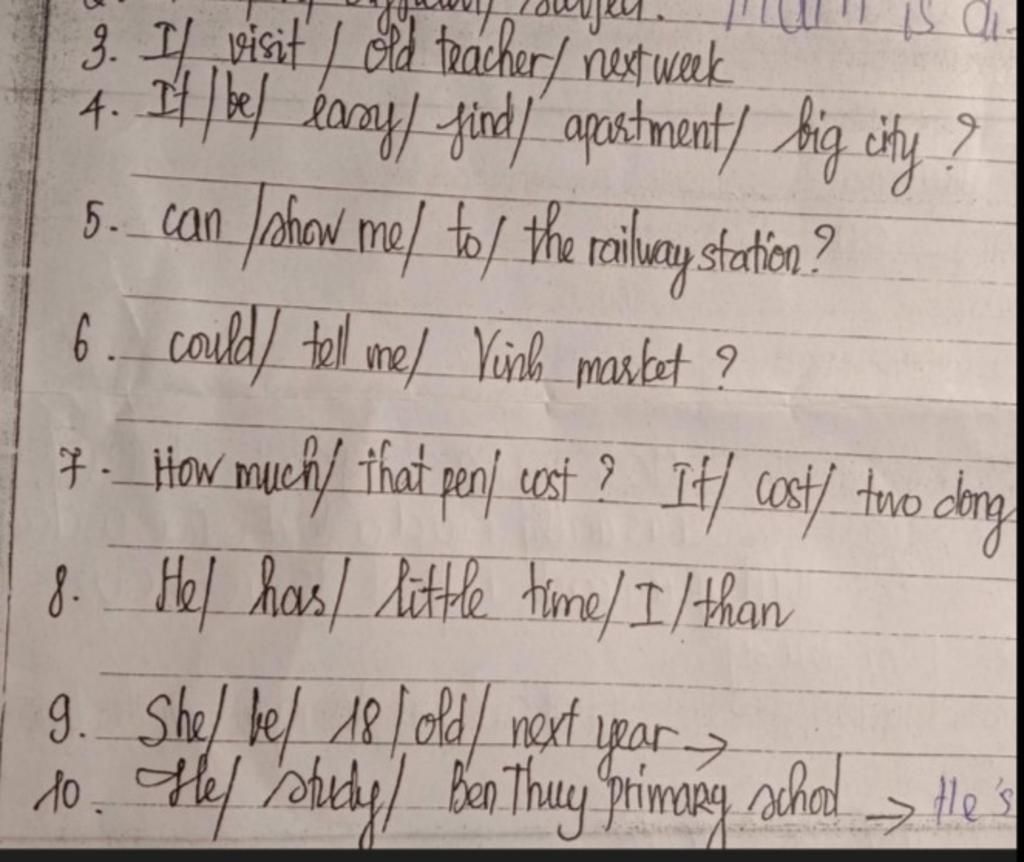 is a
3. I/ visit / old teacher/ next week
4. It /be/ easy/ find/ apartment/ big city ?
5. can /show me/ to/ the railway station?
6. could/ tell me/ Vinh market ?
7. How much/ that pen/ cost ? It/ cost/ two dong
8. He/ has/ little time/ I /than
9. She/ be/ 18 / old/ next year →
10. He/ study/ Ben Thuy primary school → He's